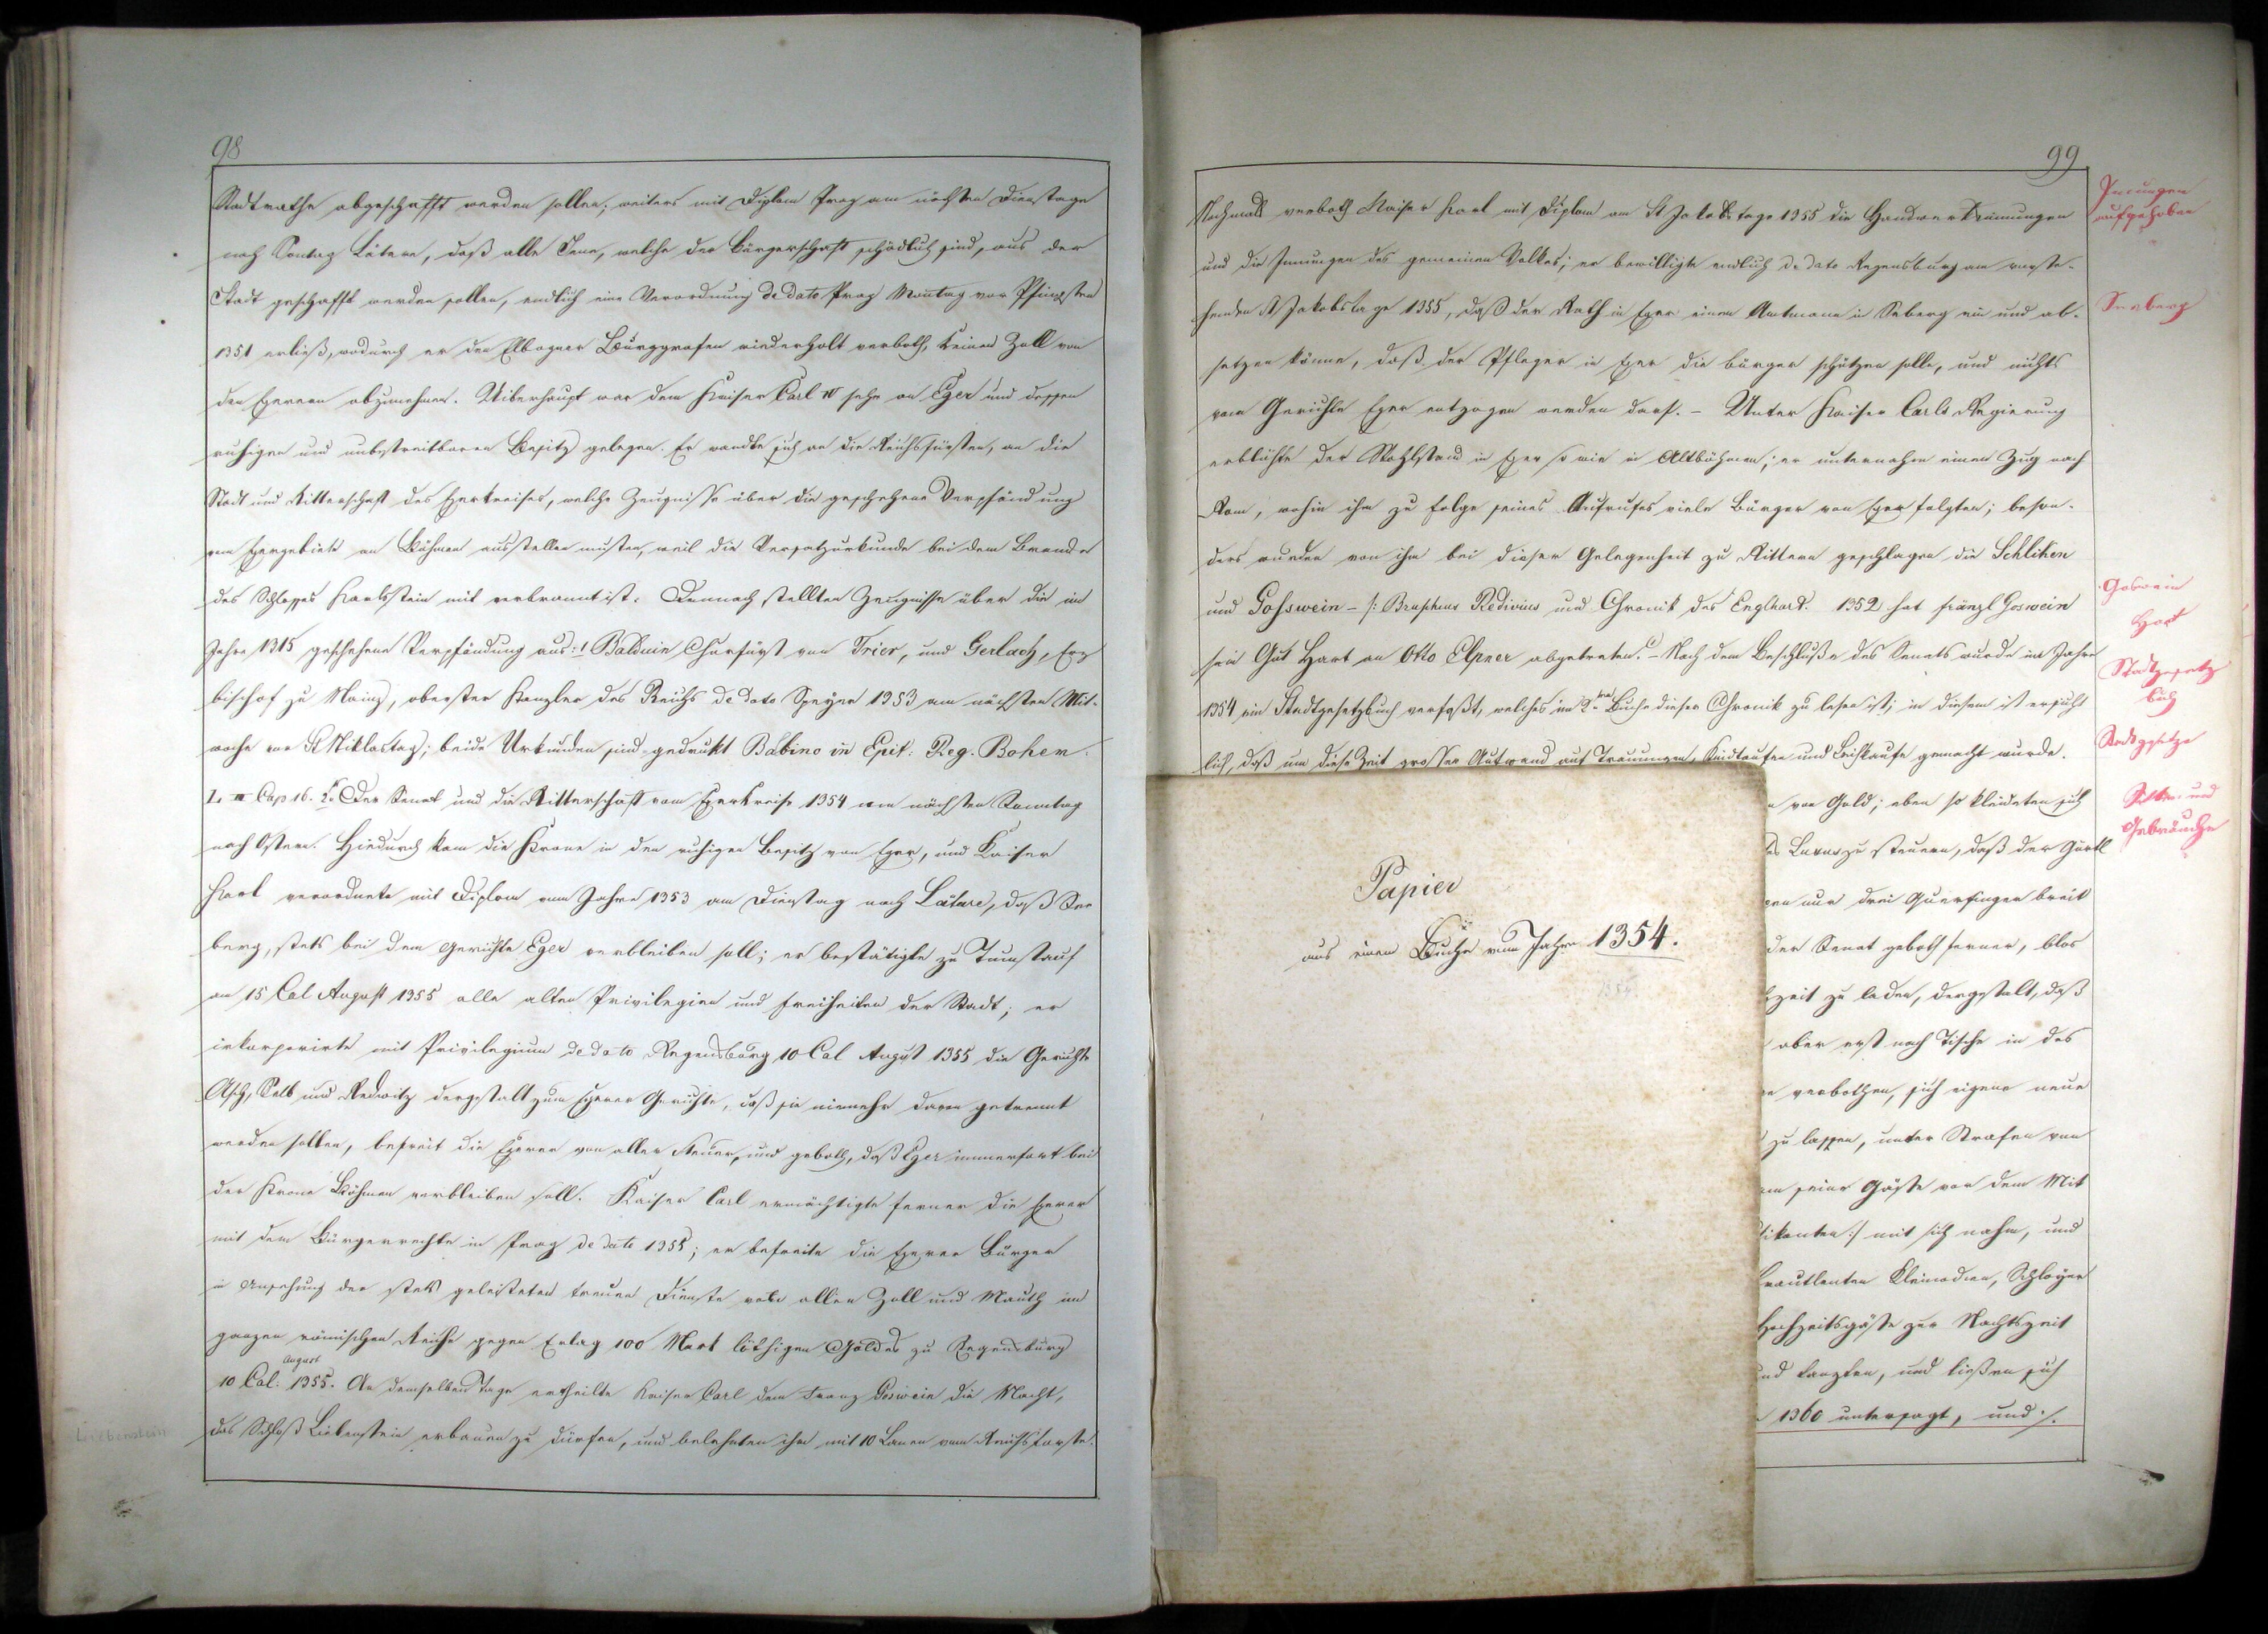 98
Stadtrathe abgeschafft werden sollen; weiters mit Diplom Prag am nächsten Dienstage
nach Sontag Lätare, daß alle Jene, welche der Bürgerschaft schädlich sind, aus der
Stadt geschafft werden sollen, endlich eine Verordnung de dato Prag Montag vor Pfingsten
1351 erließ, wodurch er den Elbogner Burggrafen wiederholt verboth, keinen Zoll von
den Egerern abzunehmen. Uiberhaupt war dem Kaiser Carl IV sehr an Eger und dessen
ruhigen und unbestreitbaren Besitz gelegen. Er wandte sich an die Reichsfürsten, an die
Stadt und Ritterschaft des Egerkreises, welche Zeugnisse über die geschehene Verpfändung
vom Egergebiete an Böhmen ausstellen mußten, weil die Versatzurkunde bei dem Brande
des Schlosses Karlsstein mit verbrannt ist. Demnach stellten Zeugnisse über die im
Jahre 1315 geschehene Verpfändung aus: 1 Balduin Churfürst von Trier, und Gerlach, Erz
bischof zu Mainz, oberster Kanzler des Reichs de dato Speyer 1353 am nächsten Mit-
woche vor St Niklastag; beide Urkunden sind gedrukt Balbino in Epit: Reg. Bohem.
L. III Cap 16. 2. Der Senat und die Ritterschaft vom Egerkreise 1354 am nächsten Sonntag
nach Ostern. Hiedurch kam die Krone in den ruhigen Besitz von Eger, und Kaiser
Karl verordnete mit Diplom vom Jahre 1353 am Dienstag nach Lätare, daß See
berg, stets bei dem Gerichte Eger verbleiben soll; er bestätigte zu
an 15 Cal August 1355 alle alten Privilegien und Freiheiten der Stadt; er
inkorporirte mit Privilegium de dato Regensburg 10 Cal August 1355 die Gerichte
Asch, Selb und Redwitz dergestalt zum Egerer Gerichte, daß sie niemehr davon getrennt
werden sollen, befreit die Egerer von aller Steuer, und geboth, daß Eger immerfort bei
der Krone Böhmen verbleiben soll. Kaiser Carl ermächtigte ferner die Egerer
mit dem Bürgerrechte in Prag de dato 1355; er befreite die Egerer Bürger
in Ansehung der stets geleisteten treuen Dienste von allen Zoll und Mauth im
ganzen römischen Reiche gegen Erlag 100 Mark löthigen Goldes zu Regensburg
10 Cal: August 1355. An demselben Tage ertheilte Kaiser Carl dem Franz Goswein die Macht,
das Schloß Liebenstein erbauen zu dürfen, und belehnten ihn mit 10 Lanen vom Reichsforste.
Liebenstein
99
Nochmals verboth Kaiser Karl mit Diplom am St Jakobstage 1355 die Handwerksinnungen
und die Innungen des gemeinen Volkes; er bewilligte endlich de dato Regensburg am vorste-
henden St Jakobstage 1355, daß der Rath in Eger einen Amtmann in Seberg ein und ab-
setzen könne, daß der Pfleger in Eger die Bürger schützen solle, und nichts
vom Gerichte Eger entzogen werden darf. – Unter Kaiser Carls Regierung
erblühte der Wohlstand in Eger so wie in Altböhmen; er unternahm einen Zug nach
Rom, wohin ihm zu folge seines Aufrufes viele Bürger von Eger folgten; beson-
ders wurden von ihm bei dieser Gelegenheit zu Rittern geschlagen die Schliken
und Gosswein – /: Bruschius Redivius und Chronik des Englhart. 1352 hat Fränzl Goswein
sein Gut Hart an Otto Elpner abgetreten. – Nach dem Beschluße des Senats wurde im Jahre
1354 ein Stadtgesetzbuch verfaßt, welches im 2ten Buche dieser Chronik zu lesen ist; in diesem ist ersicht
lich, daß um diese Zeit grosser Aufwand auf Trauungen, Kindtaufen und Leihkaufe gemacht wurde.
n von Gold; eben so kleideten sich
es Luxus zu steuern, daß der Gürtl
nur drei Querfinger breit
der Senat geboth ferner, blos
zeit zu laden, dergestalt, daß
aber erst nach Tische in des
verbothen, sich eigene neue
zu lassen, unter Strafen von
seine Gäste vor dem Mit
ikanten:/ mit sich nahm, und
Brautleuten Kleinodien, Schleyer
Hochzeitsgäste zur Nachtszeit
und tanzten, und ließen sich
1360 untersagt, und ./.
Innungen
aufgehoben
Seeberg
Goswein
Hart
Stadtgesetz
buch
Stadtgesetze
Sitten und
Gebräuche
Papier
aus einem Buche vom Jahre 1354.
1354